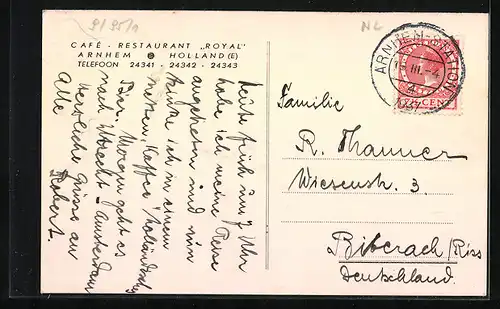 91951
NL
CAFÉ - RESTAURANT „ROYAL"
ARNHEM HOLLAND (E)
TELEFOON 24341 - 24342 - 24343
Heute früh um 9 Uhr
habe ich meine Reise
angetreten und nun
sitze ich in einem
netten Kaffee (holländisch)
Bier. Morgen geht es
nach Utrecht - Amsterdam
Herzliche Grüsse an
Alle Robert.
ARNHEM-STATION
III
CENT
Familie
R. Thanner
Wiesenstr. 3.
Biberach/Riss
Deutschland.